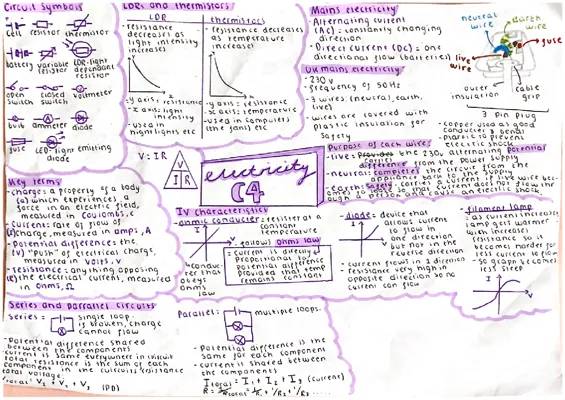 Circuit Symbols
cell resistor thermistor
battery variable resistor LDR-light dependant resistor
open switch closed switch voltmeter
bulb ammeter diode
fuse LED-light emitting diode
LDRs and thermistors
LDR
- resistance decreases as light intensity increases
- y axis: resistance
x axis: light intensity
- used in
nightlights etc
thermistors
- resistance decreases as temperature increases
- y axis: resistance
x axis: temperature
- used in computers
(the fans) etc
Mains electricity
- Alternating current
(AC) = constantly changing
direction
- Direct current (DC) = one
directional flow (batteries)
UK mains electricity
- 230 V
- frequency of 50Hz
- 3 wires: (neutral, earth,
live)
- wires are covered with
plastic insulation for
safety
neutral wire
earth wire
fuse
live wire
outer insulation
cable grip
3 pin plug
- copper used as good
conductor & bendy
- plastic to prevent
electric shock
Purpose of each wire:
- live: carries the 230V alternating potential
difference from the power supply
- neutral: completes the circuit from the
appliance back to the supply
V = IR
V
I R
electricity
C4
Key Terms
- charge: a property of a body
(Q) which experiences a
force in an electric field,
measured in coulombs, C
- current: rate of flow of
(I) charge, measured in amps, A
- Potential difference: the
(V) "push" of electrical charge,
measured in volts, V
- resistance: anything opposing
(R) the electrical current, measured
in ohms, Ω
IV characteristics
- ohmic conductor: resistor at a
constant
temperature
(follow) ohms law
= current is directly
proportional to
potential difference
provided that temp
remains constant
conductor that
obeys
ohms
law
- diode: device that
allows current
to flow in
one direction
but not in the
reverse direction
- current flows in 1 direction
- resistance very high in
opposite direction so no
current can flow
- filament lamp
- as current increases
lamp gets warmer
with increases
resistance so it
becomes harder for
current to flow
so graph becomes
less steep
Series and parallel circuits
Series = single loop.
if broken, charge
cannot flow
- Potential difference shared
between the components
- current is same everywhere in circuit
- total resistance is the sum of each
component in the circuits resistance
total voltage:
V total: V₁ + V₂ + V₃ (PD)
Parallel: multiple loops.
- Potential difference is the
same for each component
- current is shared between
the components
I total = I₁ + I₂ + I₃ (current)